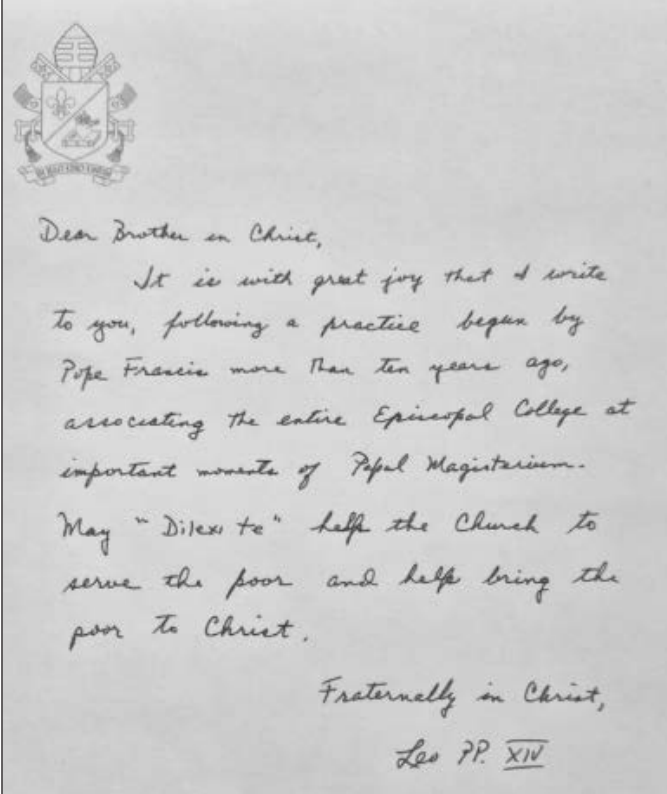 Dear Brother in Christ,
It is with great joy that I write
to you, following a practice begun by
Pope Francis more than ten years ago,
associating the entire Episcopal College at
important moments of Papal Magisterium.
May "Dilexi te" help the Church to
serve the poor and help bring the
poor to Christ.
Fraternally in Christ,
Leo PP. XIV